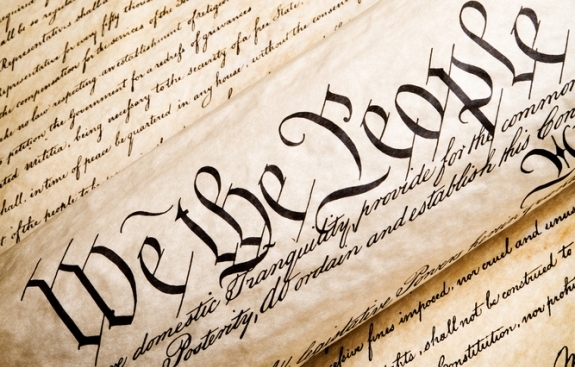 Representatives for every fifty thous
the compensation for the services of the
no law respecting an establishment of religion
petition the Government for a redress of grievances
ated militia, being necessary to the security of a free State,
shall, in time of peace be quartered in any house, without the consent
t of the people to be
We the People
domestic Tranquility, provide for the common
Posterity, do ordain and establish this Con
legislative Powers herein
fines imposed, nor cruel and unus
rights, shall not be construed to
onstitution, nor proh